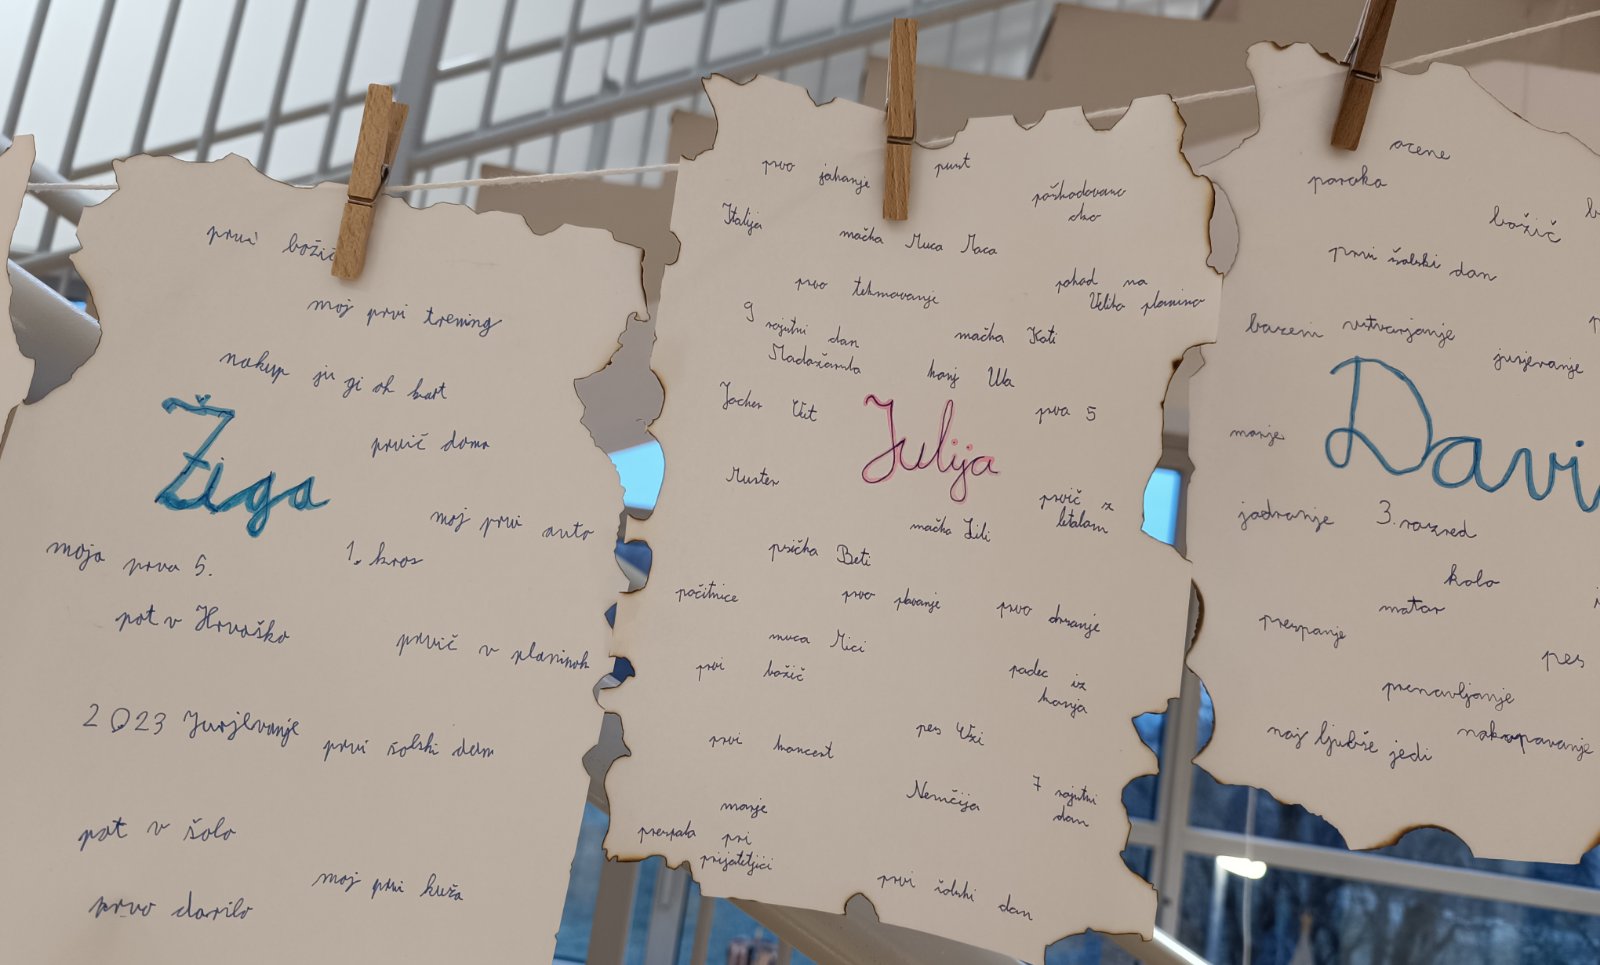 prvi božič
moj prvi trening
nakup ju gi oh kart
prvič doma
Žiga
moj prvi auto
moja prva 5.
1. kros
pot v Hrvaško
prvič v planinah
2023 Jurjevanje
prvi šolski dan
pot v šolo
moj prvi kuža
prvo darilo
prvo jahanje
punt
poškodovano
oko
Italija
mačka Muca Maca
prvo tekmovanje
pohod na
Velika planina
9 rojstni dan
mačka Kati
Madžarska
konj
prva 5
Julija
Muster
prvič z
letalom
mačka Lili
psička Beti
počitnice
prvo plavanje
prvo drsanje
muca Mici
prvi božič
padec iz
konja
prvi koncert
pes
Nemčija
7 rojstni
dan
morje
prespala pri
prijateljici
prvi šolski dan
ocene
poroka
božič
prvi šolski dan
bazeni
ustvarjanje
jurjevanje
morje
Davi
jadranje
3. razred
kolo
motor
prespanje
pes
prenavljanje
naj ljubše jedi
nakupovanje